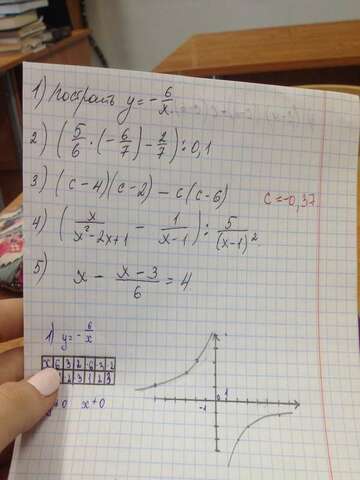 1) построить y = -6/x
2) (5/6 · (-6/7) - 2/7) : 0,1
3) (c-4)(c-2) - c(c-6)
c = -0,37
4) (x/(x²-2x+1) - 1/(x-1)) : 5/(x-1)²
5) x - (x-3)/6 = 4
1) y = -6/x
x 6 3 2 -6 -3 -2
-2 -3 1 2 3
≠0 x≠0
1
-1